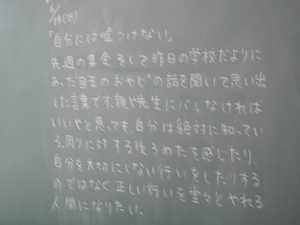 「自分には嘘つけない。」
先週の集会、そして昨日の学校だよりに
あった目玉のおやじの話を聞いて思い出
した言葉です。親や先生にバレなければ
いいやと思っても、自分は絶対に知ってい
る。周りに対する後ろめたさを感じたり、
自分を大切にしない行いをしたりする
のではなく正しい行いを堂々とやれる
人間になりたい。